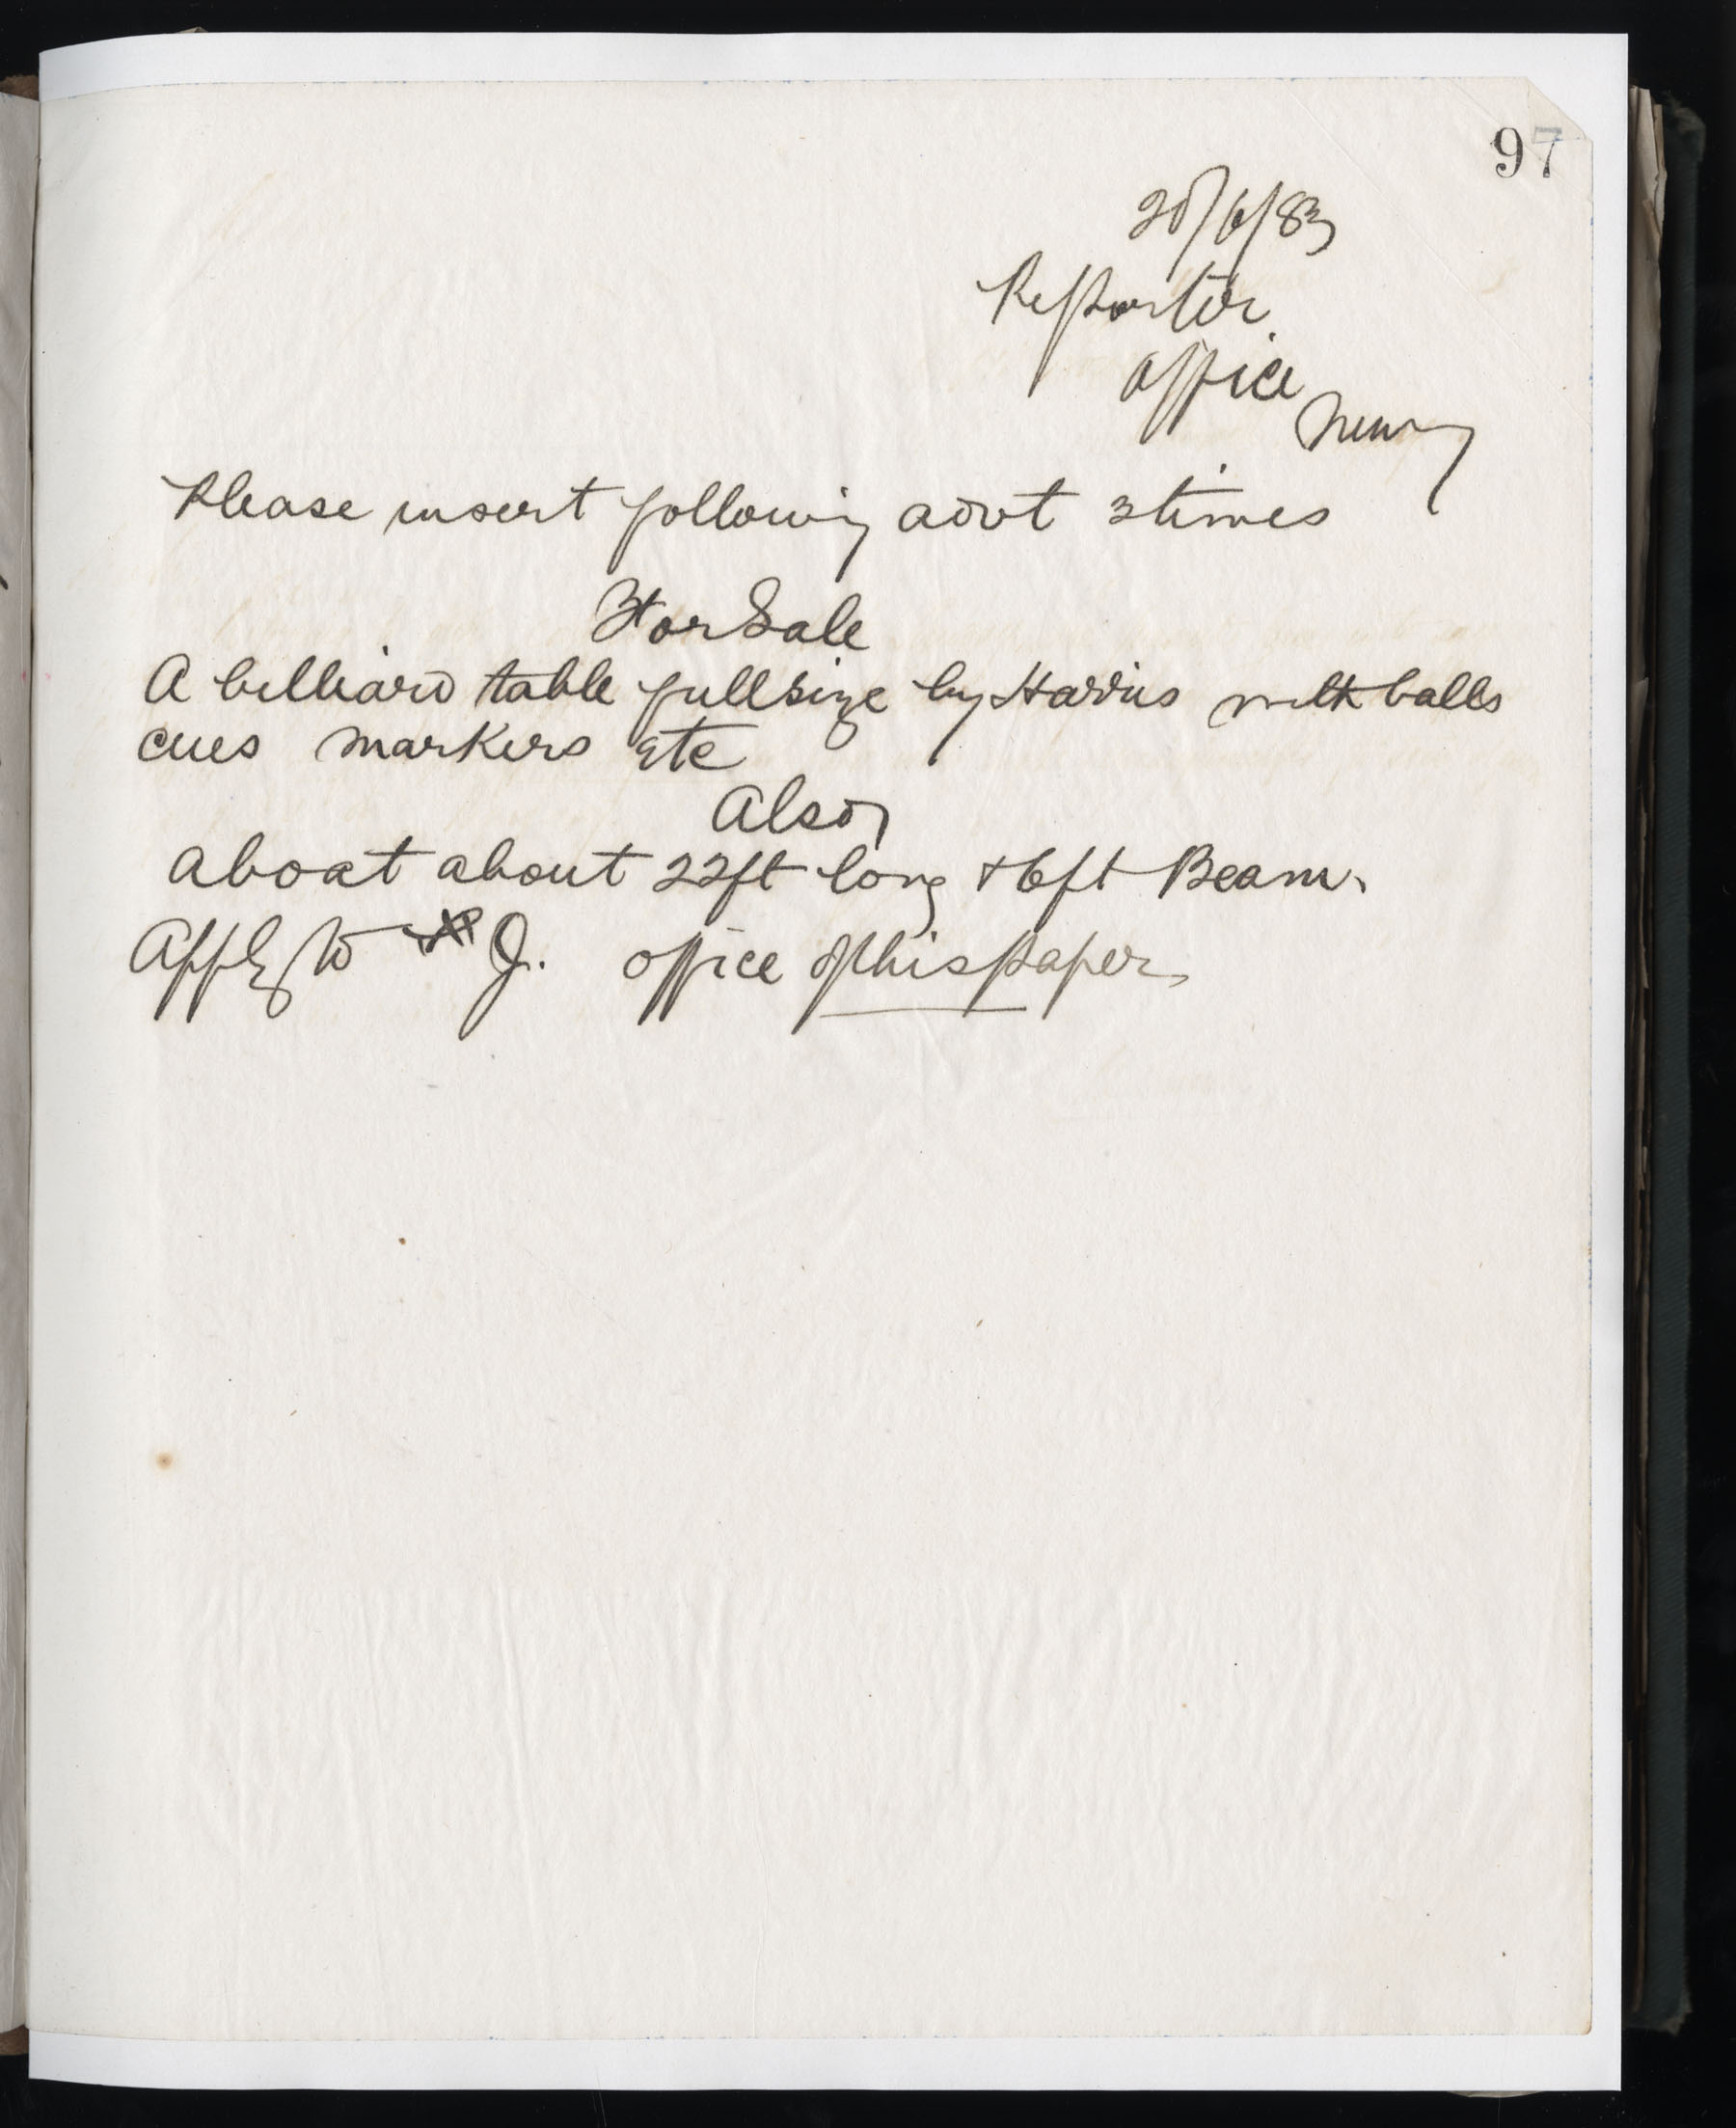 97
20/6/83
Reporter
office
Newry
Please insert following advt 3 times
For Sale
A billiard table full size by Harris with balls
cues markers Etc
Also
a boat about 22ft long & 6ft Beam.
Apply to J. office of this paper